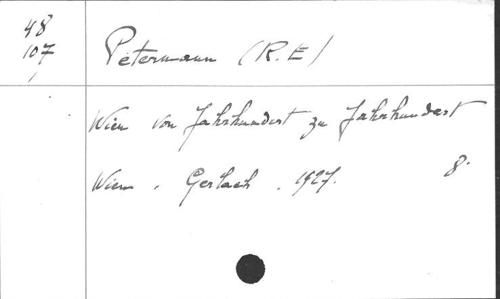 48
107
Petermann (R. E)
Wien von Jahrhundert zu Jahrhundert
Wien. Gerlach. 1927. 8.